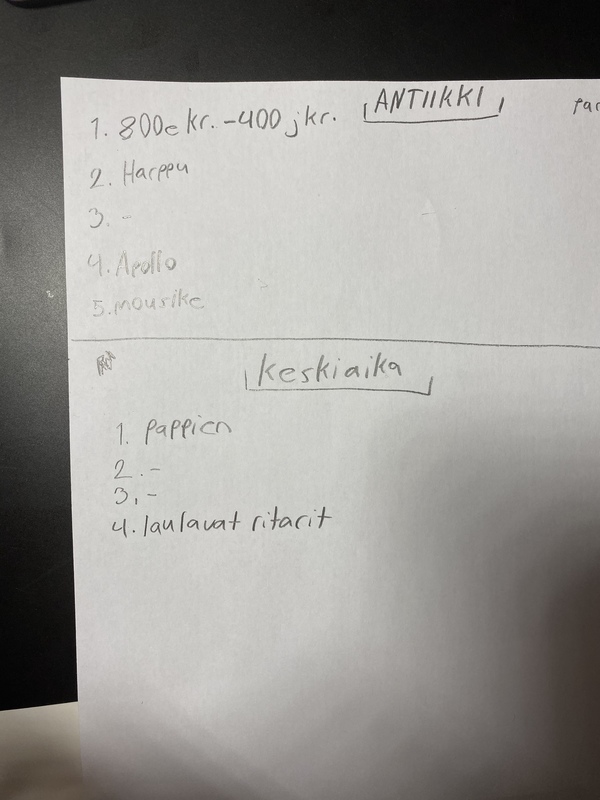 ANTIIKKI
1. 800e kr. - 400 jkr.
2. Harppu
3. -
4. Apollo
5. mousike
keskiaika
1. pappien
2. -
3. -
4. laulavat ritarit